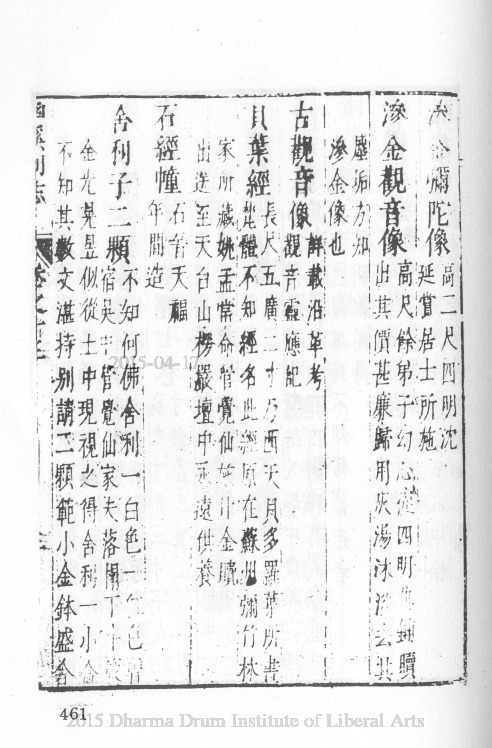 滲金彌陀像高二尺四明沈
延賞居士所施
滲金觀音像高尺餘弟子幻 從四明 贖
出其價甚廉歸用灰湯沐浴去其
塵垢方知
滲金像也
古觀音像詳載沿革考
觀音靈應紀
貝葉經長尺五廣二寸乃西天貝多羅葉所書
梵體不知經名此經原在蘇州 竹林
家所藏姚孟常命管覺仙施 金贖
出送至天台山楞嚴壇中永遠供養
石經幢石晉天福
年間造
舍利子二顆不知何佛舍利一白色一 色
宿吳中管覺仙家夫落 下
金光晃昱似從土中現視之得舍利一小
不知其數文湛持别請二顆範小金鉢盛
幽溪别志 卷之
2015-04-17
461
2015 Dharma Drum Institute of Liberal Arts